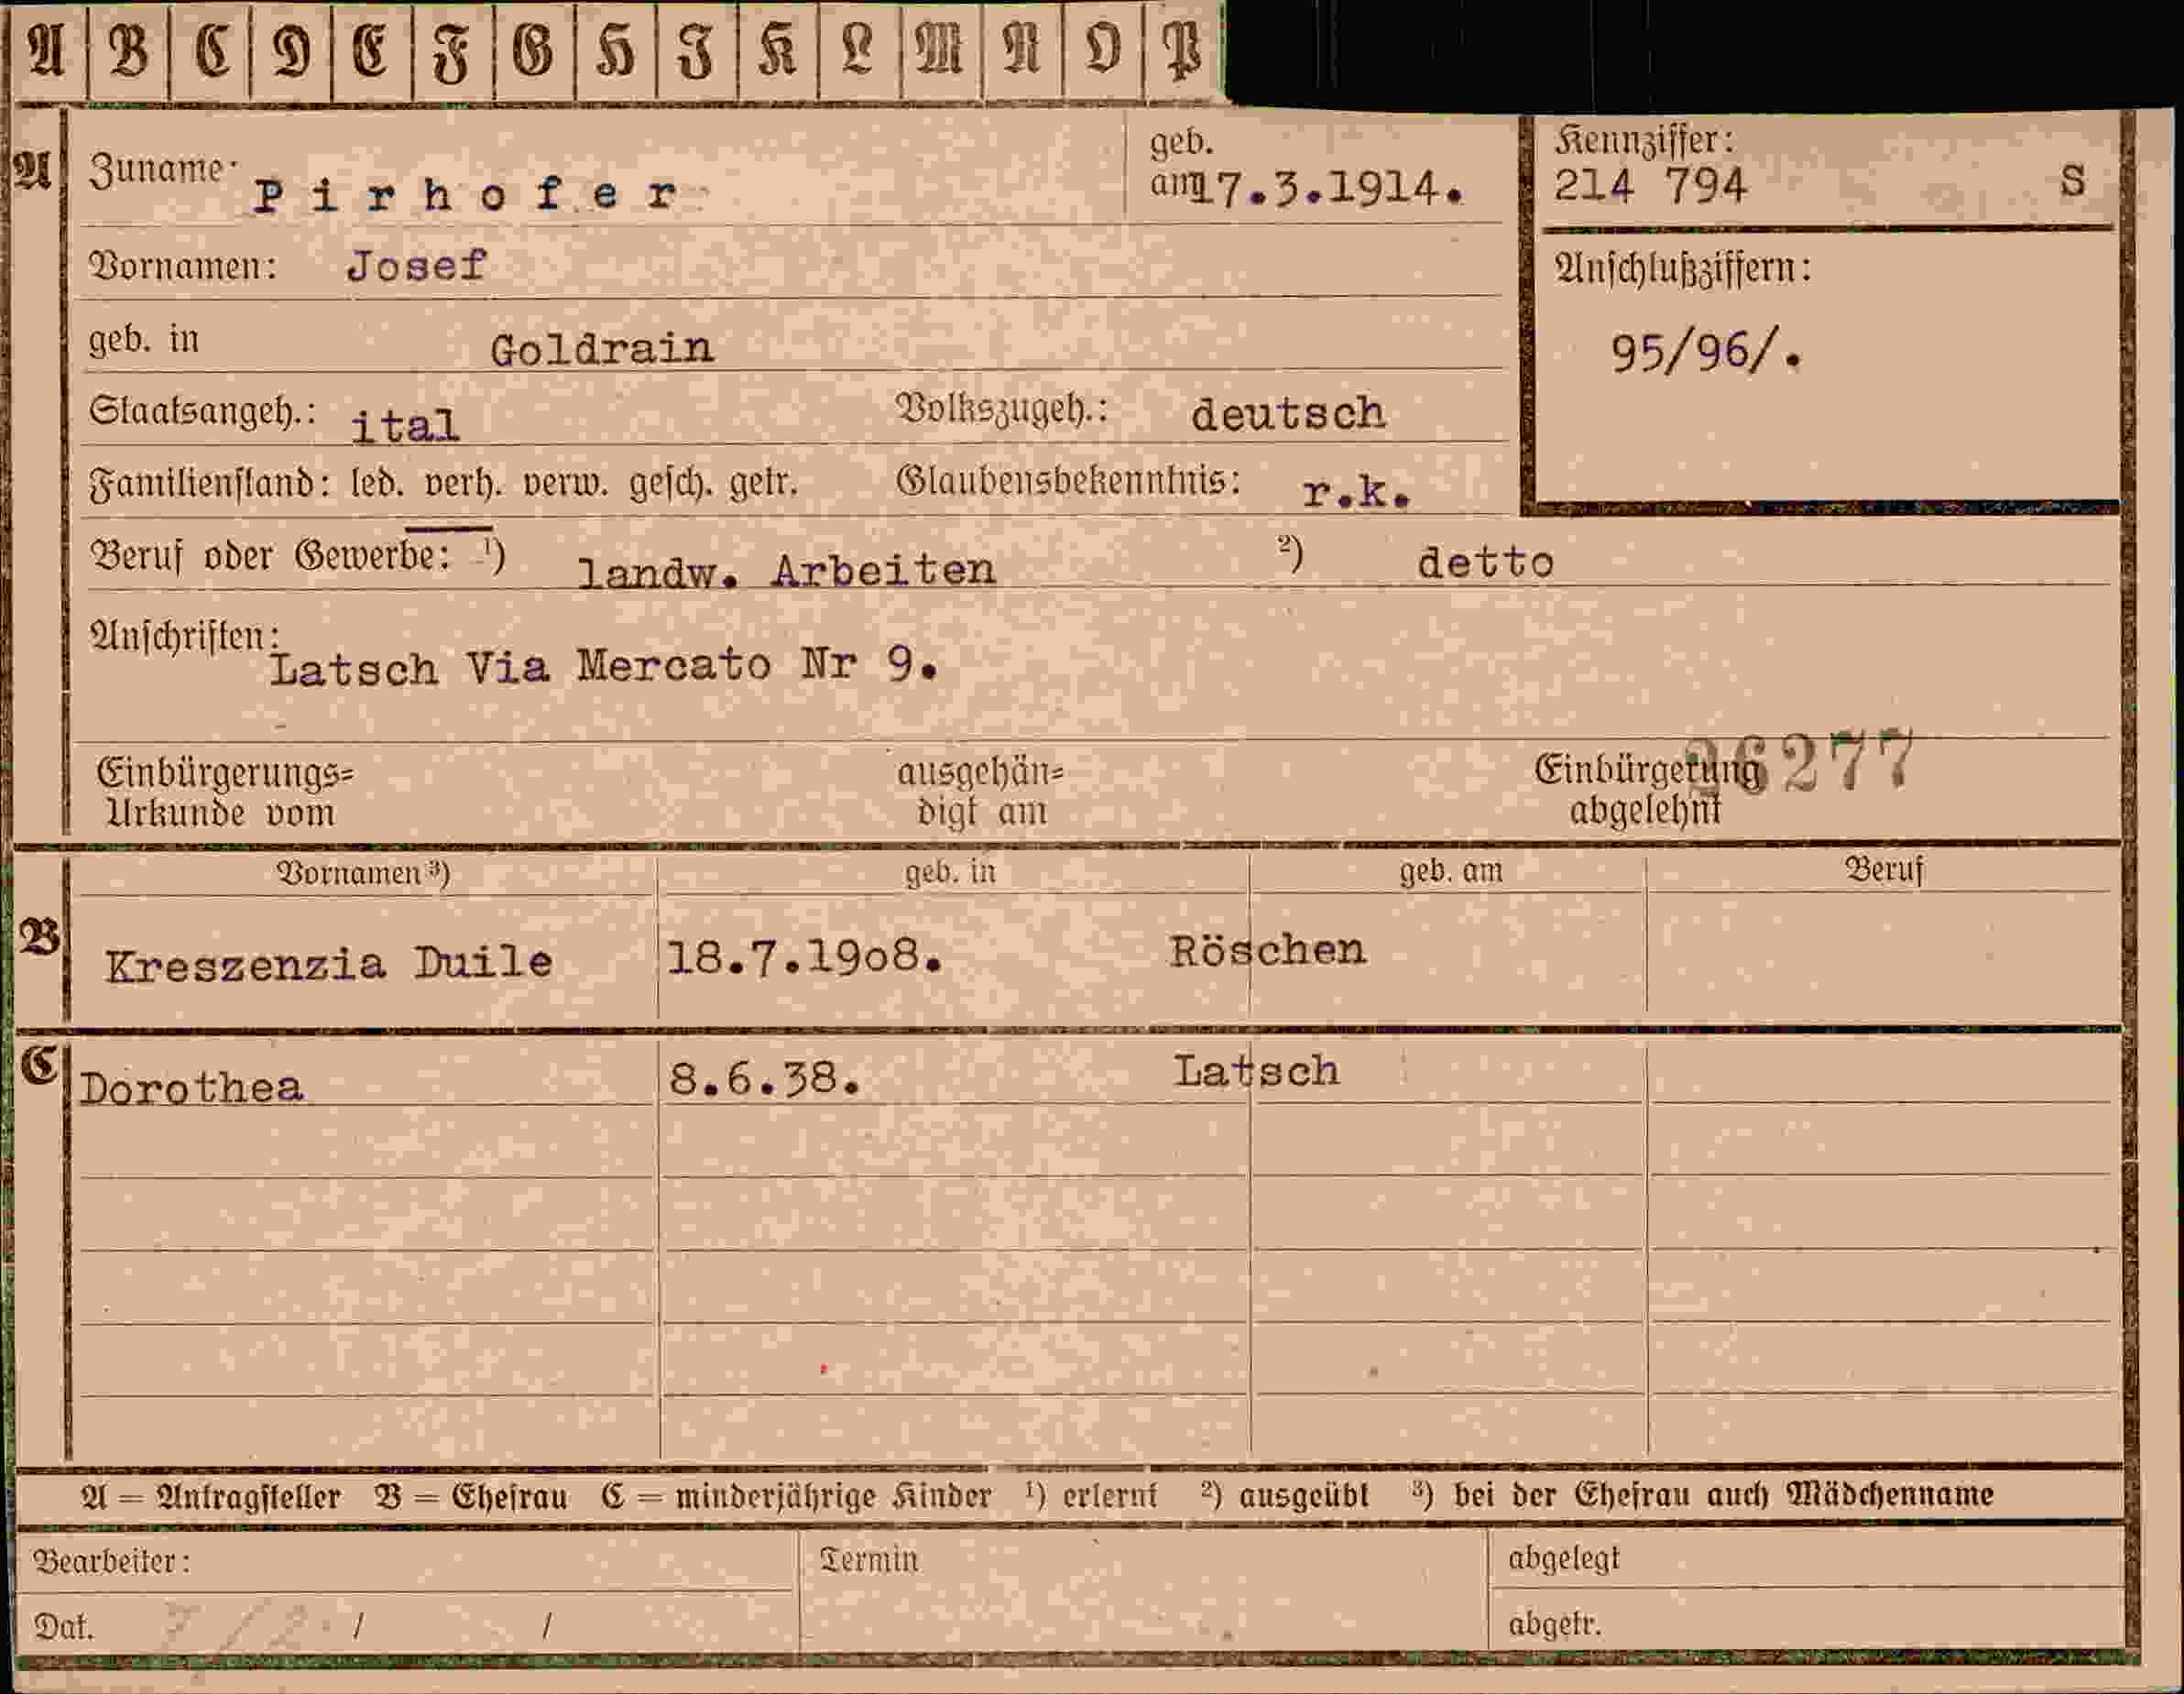 A B C D E F G H I K L M N O P
A Zuname: Pirhofer geb. am 17.3.1914. Kennziffer: 214 794 S
Vornamen: Josef Anschlußziffern:
geb. in Goldrain 95/96/.
Staatsangeh.: ital Volkszugeh.: deutsch
Familienstand: led. verh. verw. gesch. getr. Glaubensbekenntnis: r.k.
Beruf oder Gewerbe: ¹) landw. Arbeiten ²) detto
Anschriften: Latsch Via Mercato Nr 9.
26277
Einbürgerungs= ausgehän= Einbürgerung
Urkunde vom digt am abgelehnt
Vornamen ³) geb. in geb. am Beruf
B Kreszenzia Duile 18.7.19o8. Röschen
C Dorothea 8.6.38. Latsch
A = Antragsteller B = Ehefrau C = minderjährige Kinder ¹) erlernt ²) ausgeübt ³) bei der Ehefrau auch Mädchenname
Bearbeiter: Termin abgelegt
Dat. / / abgetr.